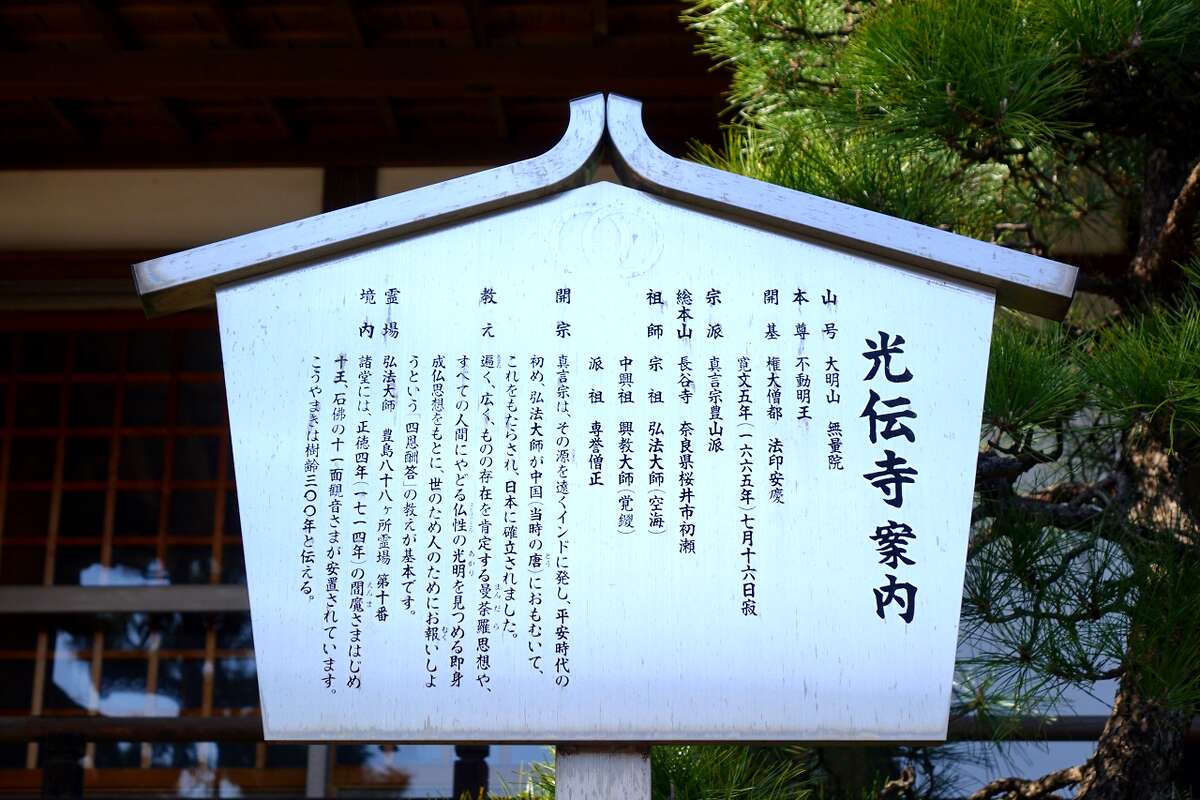 光伝寺案内
山号 大明山 無量院
本尊 不動明王
開基 権大僧都 法印安慶
寛文五年(一六六五年)七月十六日寂
宗派 真言宗豊山派
総本山 長谷寺 奈良県桜井市初瀬
祖師 宗祖 弘法大師(空海)
中興祖 興教大師(覚鑁)
派祖 専誉僧正
開宗 真言宗は、その源を遠くインドに発し、平安時代の
初め、弘法大師が中国(当時の唐)におもむいて、
これをもたらされ、日本に確立されました。
教え 遍く、広く、ものの存在を肯定する曼荼羅思想や、
すべての人間にやどる仏性の光明を見つめる即身
成仏思想をもとに、世のため人のためにお報いしよ
うという「四恩酬答」の教えが基本です。
霊場 弘法大師 豊島八十八ヶ所霊場 第十番
境内 諸堂には、正徳四年(一七一四年)の閻魔さまはじめ
十王、石佛の十一面観音さまが安置されています。
こうやまきは樹齢三〇〇年と伝える。